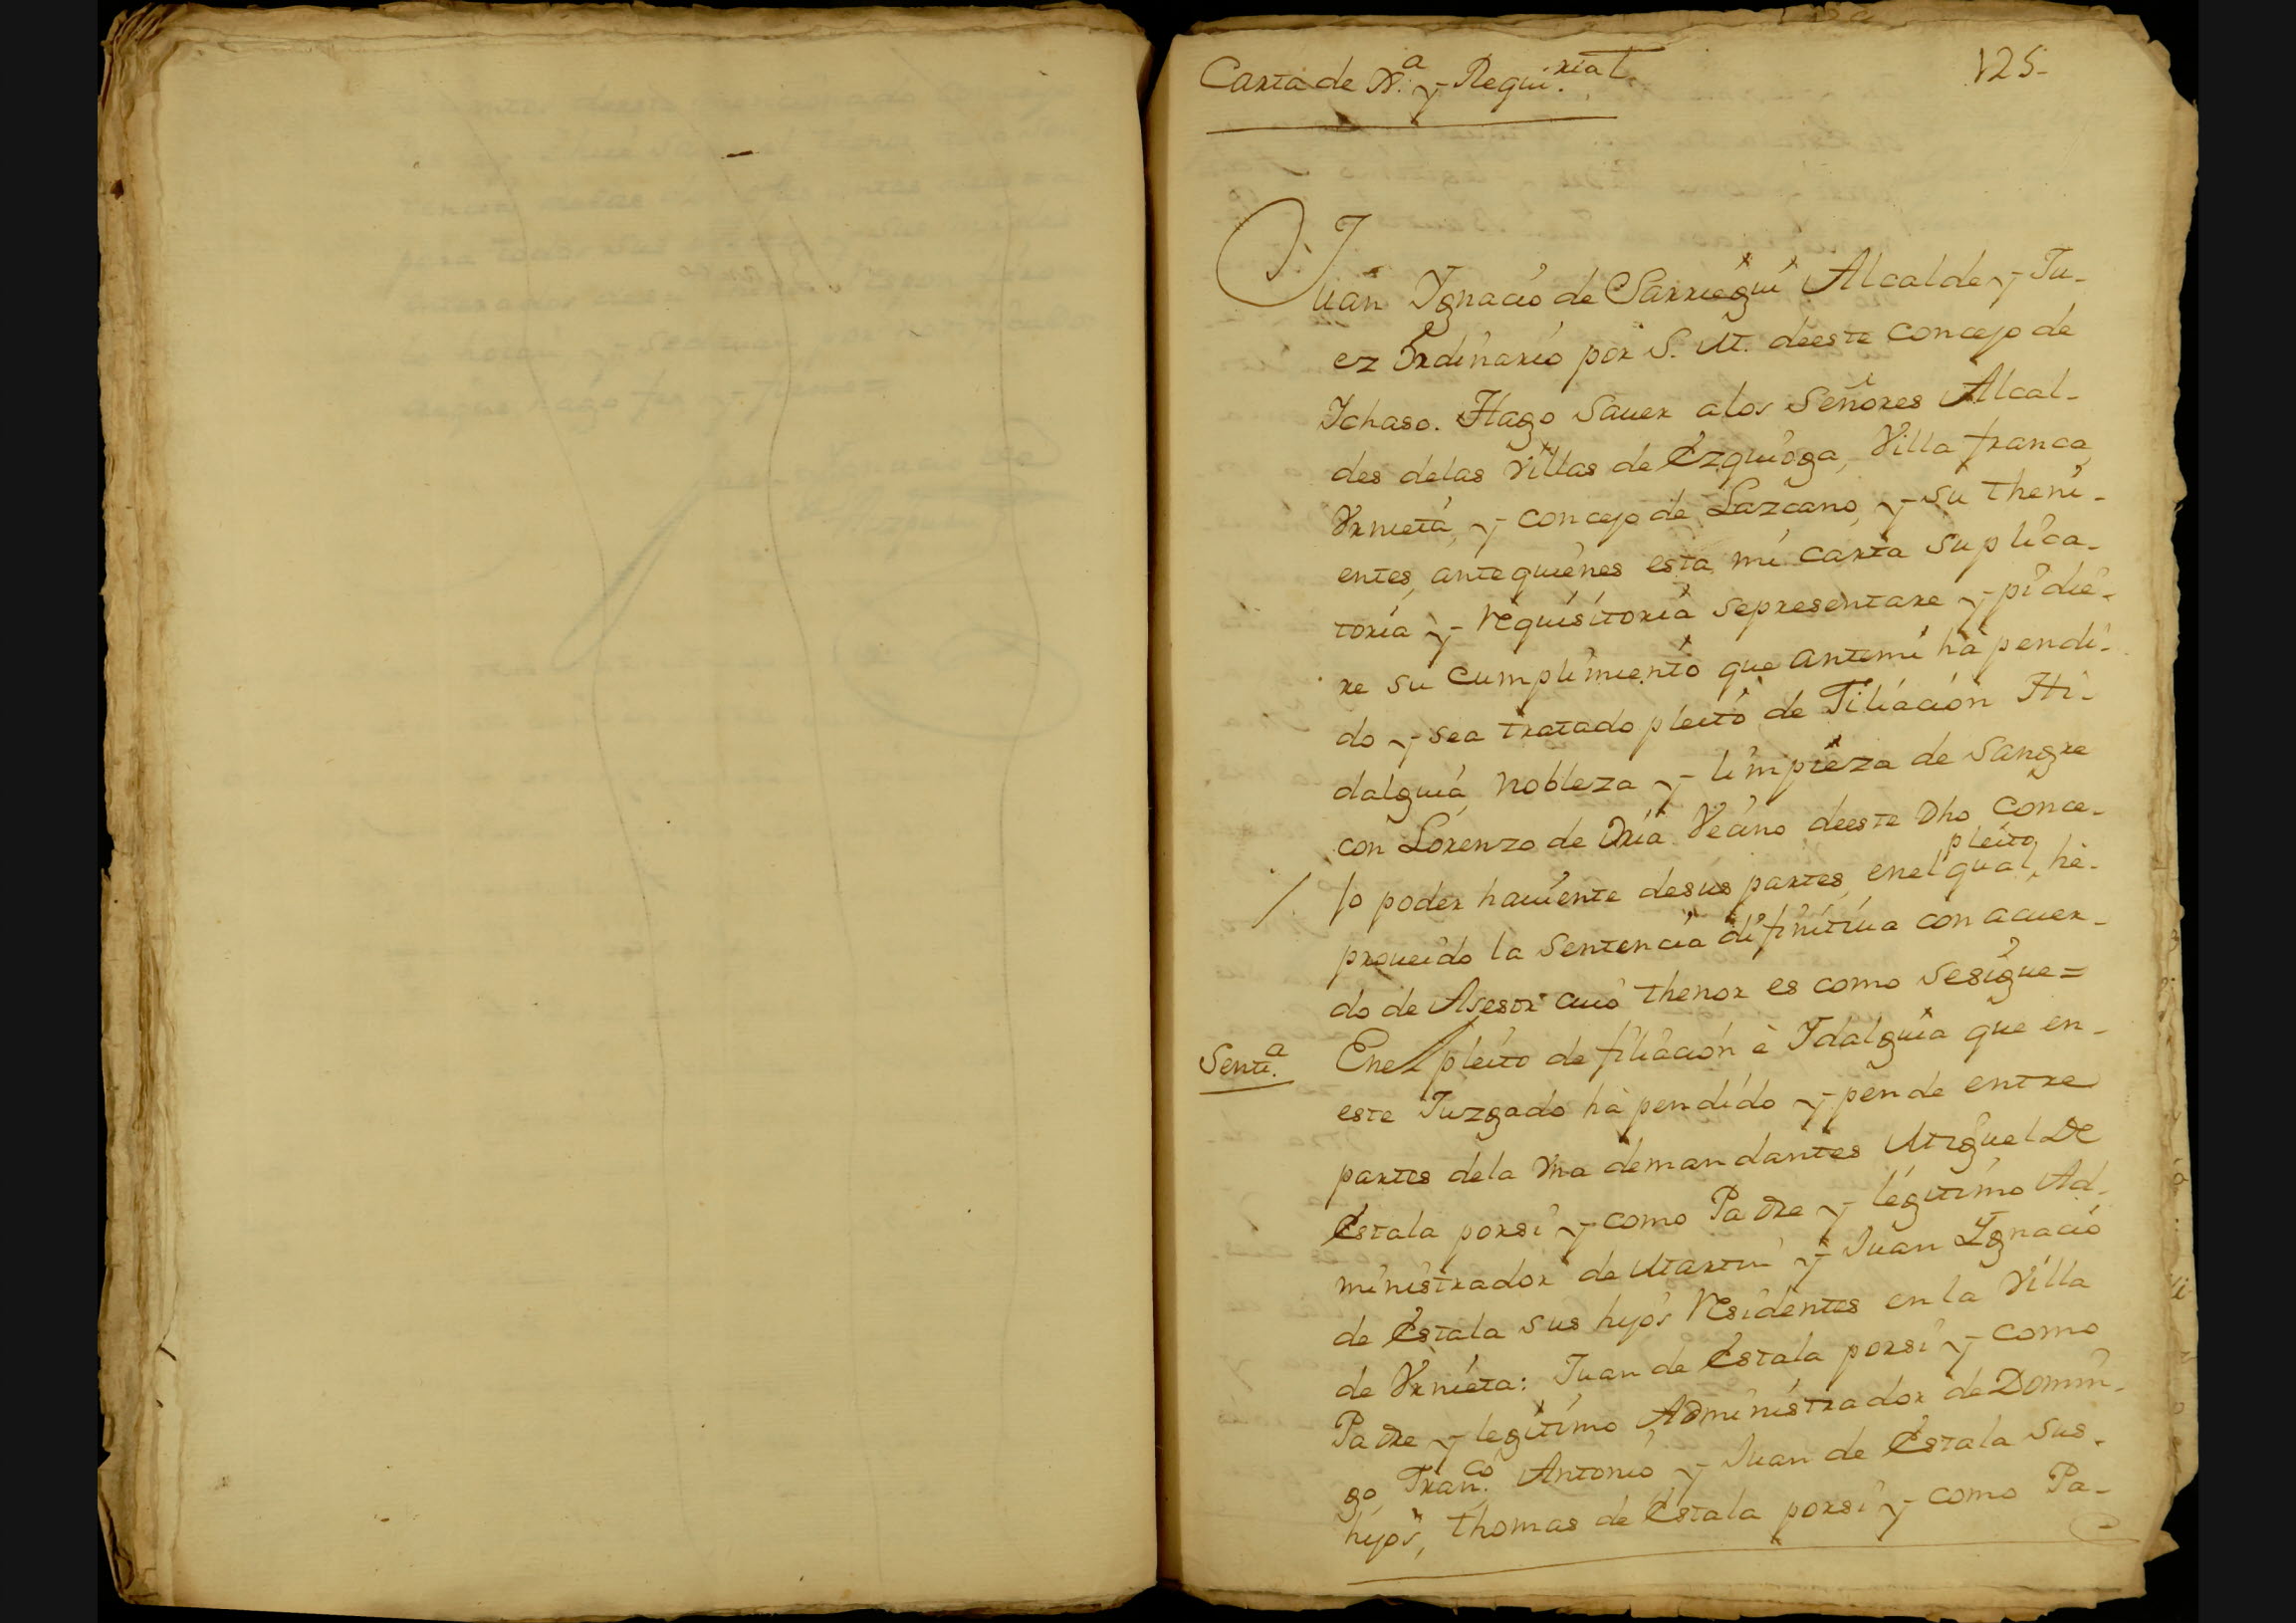 Carta de N.ª y Requi.ria L
125-
D. Juan Ygnacio de Sarriegui Alcalde y Ju-
ez Ordinario por S. M. deeste concejo de
Ichaso. Hago sauer alos Señores Alcal-
des delas Villas de Ezquioga, Villa franca,
Vrnieta, y concejo de Lazcano, y su theni-
entes, antequienes esta mi carta suplica-
toria y requisitoria sepresentare y pidie-
re su cumplimiento que antemi hà pendi-
do y sea tratado pleito de Filiacion Hi-
dalguia nobleza y limpieza de sangre
con Lorenzo de Oria Vecino deeste Dho conce-
jo poder hauiente desus partes, enel qual pleito, hè-
proueido la sentencia difinitiua con acuer-
do de Asesor cuio thenor es como sesigue=
Sent.ª
Enel pleito de filiacion è Idalguia que en-
este Juzgado hà pendido y pende entre
partes dela vna demandantes Miguel De
Estala porsi y como Padre y legitimo Ad-
ministrador de Martin y Juan Ygnacio
de Estala sus hijos residentes en la Villa
de Vrnieta: Juan de Estala porsi y como
Padre y legitimo Administrador de Domin-
go, Fran.co Antonio y Juan de Estala sus-
hijos, thomas de Estala porsi y como Pa-